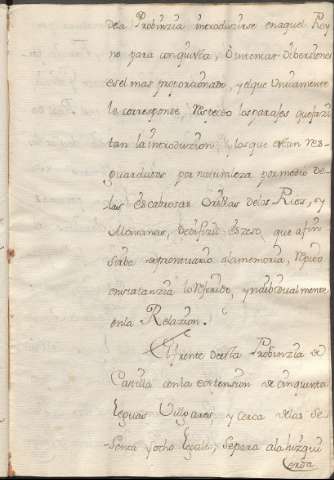 dela Probinzia introduzirse en aquel Rey
no para conquista, ò intentar diberciones
es el mas proporcionado, y el que Unicamente
le corresponde; Respecto los parajes que facili
tan la introduzion, y los que estan res-
guardados por naturaleza por medio de
las escabrosas Orillas delos Rios, y
Montañas, que afin
serbir ala memoria, Repito
en lo Referido, y yndibidualmente
en la Relazion.
El frente desta Probinzia de
Castilla con la extension de cinquenta
leguas Vulgares, y cerca delas se-
senta y ocho legales; separa ala Yzqui
erda